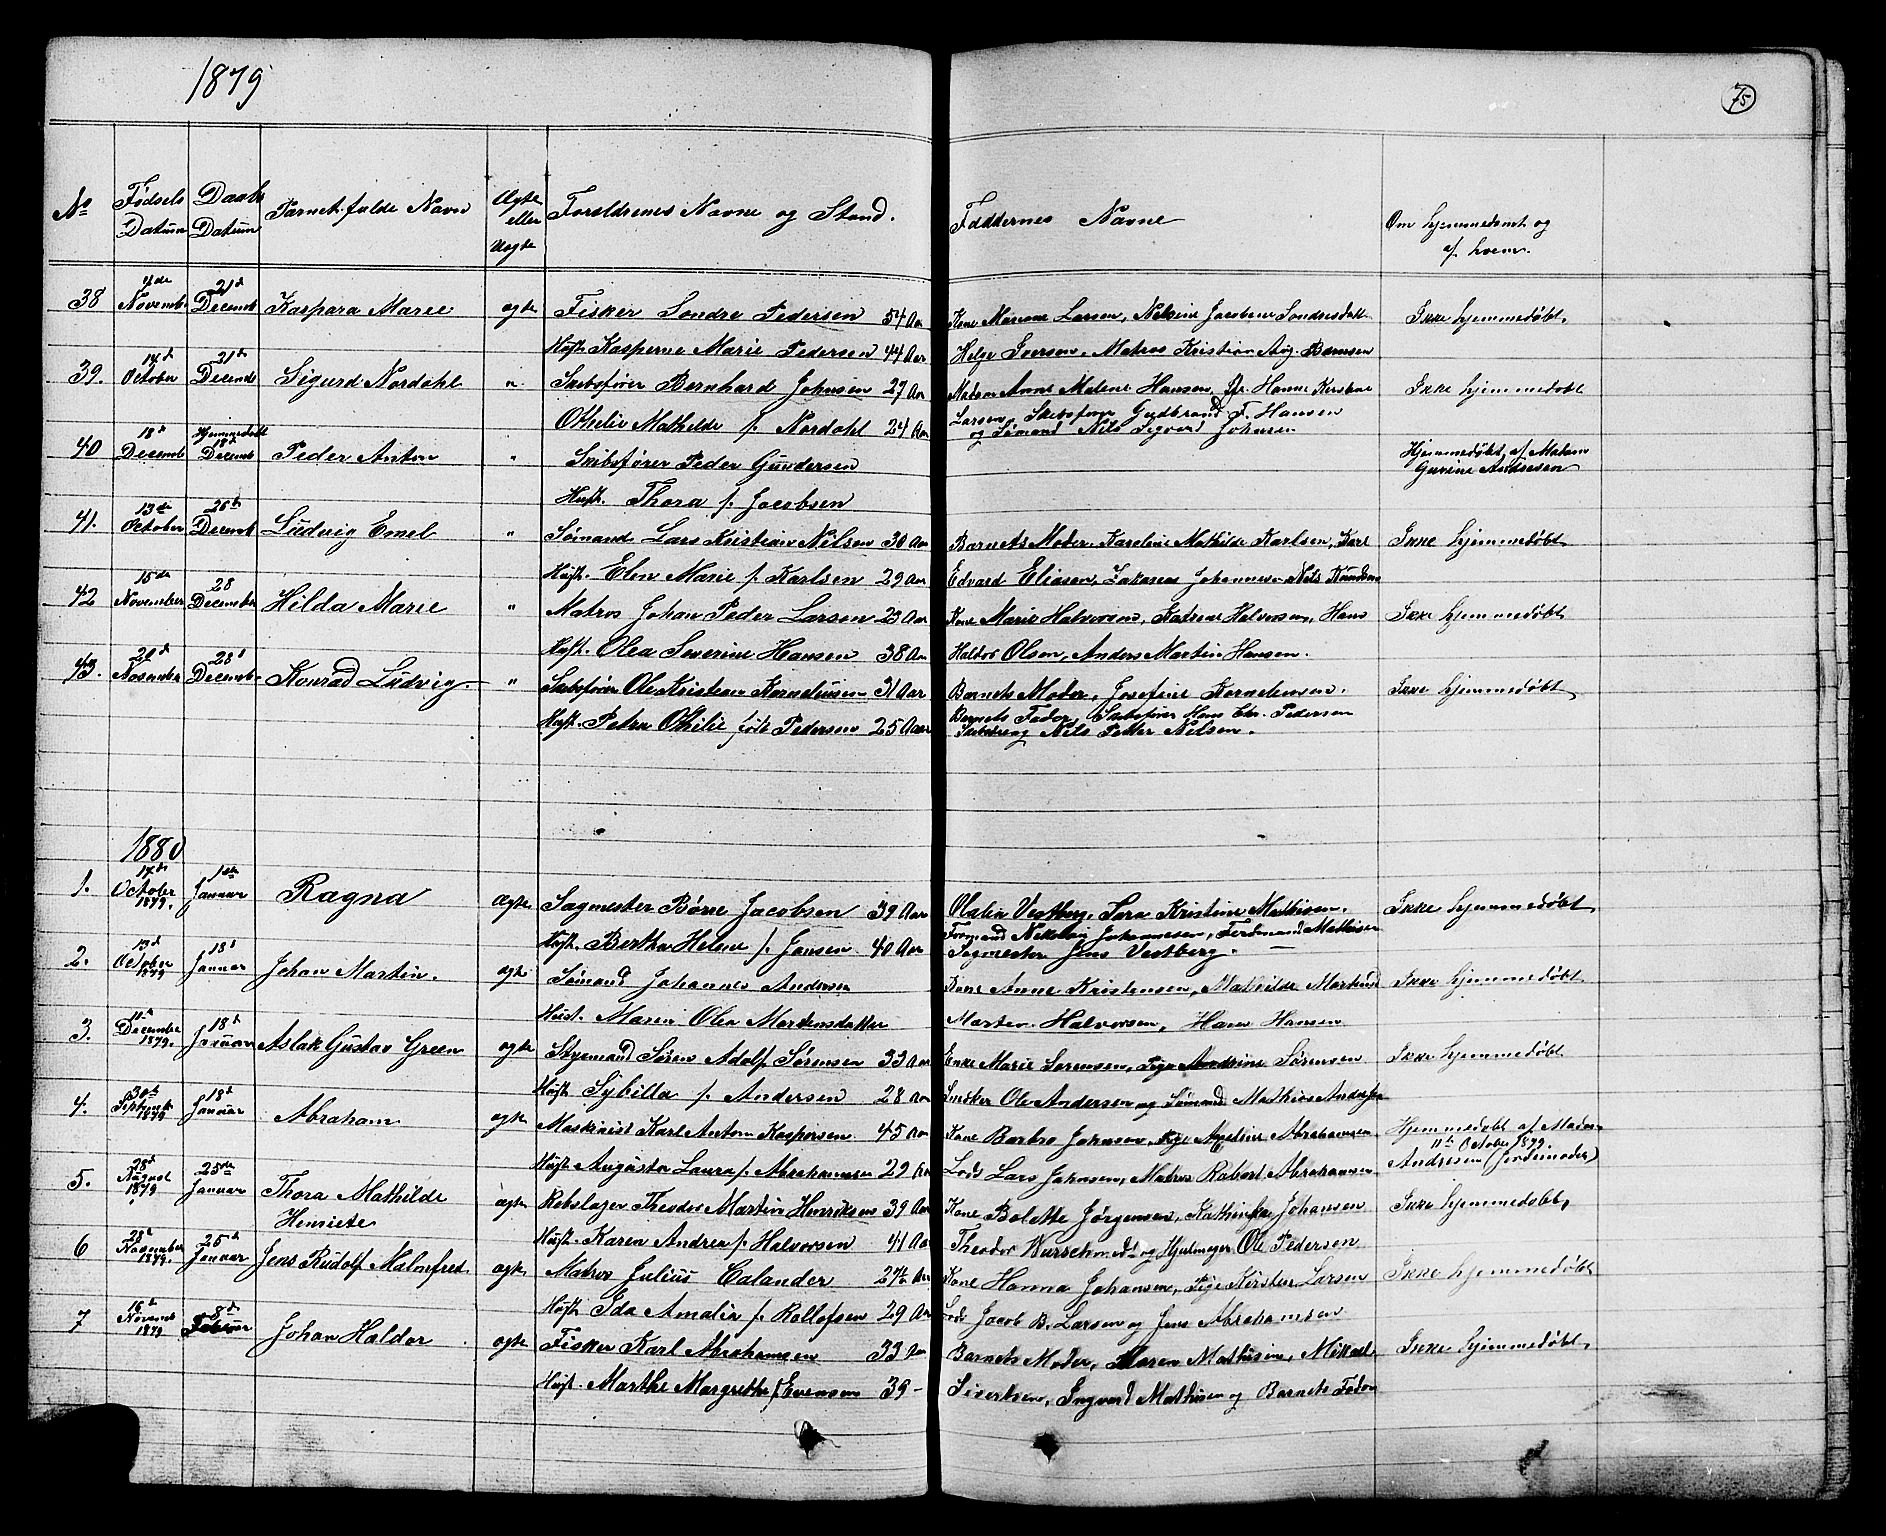 1879
75
No
Fødsels Datum
Daabs Datum
Barnets fulde Navn
Ægte eller Uægte
Forældrenes Navne og Stand.
Faddernes Navne
Om hjemmedøbt og af hvem.
38 Novembr 21d Decemb Kaspara Marie ægte Fisker Sondre Pedersen 54 Aar Kone Mariane Larsen, Nilsine Jacobine Sondresdatt Ikke hjemmedøbt.
Hust. Kasperne Marie Pedersen 44 Aar Helge Iversen, Matros Kristian Aug. Berntsen
39. October 21d Decemb Sigurd Nordahl " Skibsfører Bernhard Johnsen 27 Aar Madam Anne Malene Hansen, Hanne Kirstine Ikke hjemmedøbt
Othelie Mathilde f. Nordahl 24 Aar Larsen, Skibsfører Gudbrand F. Hansen
og Sømand Nils Sigvard Johnsen
40 18d Decemb Hjemmedøbt 18d Decemb Peder Anton " Skibsfører Peder Gundersen Hjemmedøbt af Madam
Hust. Thora f. Jacobsen Gurine Andresen
41. 13de October 26de Decemb Ludvig Emel " Sømand Lars Kristian Nilsen 30 Aar Barnets Moder, Karoline Mathilde Karlsen, Karl Ikke hjemmedøbt
Hust. Elen Marie f. Karlsen 29 Aar Edvard Eliasen, Johannesen Nils Knudsen
42 15de November 28 December Hilda Marie " Matros Johan Peder Larsen 23 Aar Kone Marie Halvorsen, Katrine Halvorsen, Hans Ikke hjemmedøbt
Hust. Olea Severine Hansen 38 Aar Haldor Olsen, Anders Martin Hansen.
43. November 28d Decemb. Konrad Ludvig. " Skibsfører Ole Kristian Korneliussen 31 Aar Barnets Moder, Josefine Kornelensen. Ikke hjemmedøbt
Hust. Petra Othilie født Pedersen 25 Aar Barnets Fader, Skibsfører Hans Chr. Pedersen
Nils Petter Nilsen.
1880
1. 17de October 1879. 1ste Januar Ragna Ægte Sagmester Børre Jacobsen 39 Aar Olalia Vestberg, Sara Kristine Mathisen. Ikke hjemmedøbt
Hust. Bertha Helene f. Jansen 40 Aar Formand Nikolai Johannesen, Ferdinand Mathisen
Sagmester Jens Vestberg.
2. 13d October 1879 18d Januar Johan Martin. ægte Sømand Johannes Andersen Kone Anne Kristensen, Mathilde Ikke hjemmedøbt
Hust. Maren Olea Mortensdatter Morten Halvorsen, Hans Hansen
3. December 1879. 18d Januar Aslak Gustav Green ægte Styrmand Søren Adolf Sørensen 33 Aar Enke Marie Sørensen, Pige Andrine Sørensen Ikke hjemmedøbt
Hust. Sybilla f. Andersen 28 Aar Snedker Ole Andersen og Sømand Mathias Andersen
4. 30te Septemb 1879 18d Januar Abraham ægte Maskinist Karl Anton Kaspersen 45 Aar Kone Barbro Johnsen, Pige Abrahamsen Hjemmedøbt af Madam
11te October 1879.
Hust. Augusta Laura f. Abrahamsen 29 Aar Lods Lars Johnsen, Matros Robert Abrahamsen Andresen (Jordemoder)
5. 28d 1879 25de Januar Thora Mathilde Henriete ægte Rebslager Theodor Martin Henriksen 39 Aar Kone Bolette Jørgensen, Kathinka Johansen Ikke hjemmedøbt
Hust. Karen Andrea f. Halvorsen 41 Aar Theodor og Hjulmager Ole Pedersen
6 November 1879. 25d Januar Jens Rudolf Malmfred ægte Matros Julius Calander Aar Kone Hanna Johansen, Pige Kirstine Larsen Ikke hjemmedøbt
Hust. Ida Amalia f. Rollofsen 29 Aar Lods Jacob B. Larsen og Jens Abrahamsen
7 16d Novemb 1879 8d Februar Johan Haldor ægte Fisker Karl Abrahamsen 33 Aar Barnets Moder, Maren Mathisen, Mikael Ikke hjemmedøbt
Hust. Marthe Margrethe f. Evensen 39 - Sivertsen, Ingvard Mathisen og Barnets Fader